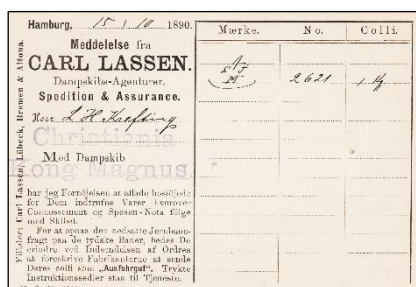 Hamburg, 15/10 1890.
Meddelelse fra
CARL LASSEN.
Dampskibs-Agenturer.
Spedition & Assurance.
Herr L H Krefting
Christiania
Med Dampskib
Kong Magnus
har jeg Fornöjelsen at aflade hosföjede
for Dem indtrufne Varer hvorover
Connossement og Spesen-Nota følge
med Skibet.
For at opnaa den nedsatte Jernbane-
fragt paa de tydske Baner, bedes De
erindre ved Indsendelsen af Ordres
at foreskrive Fabrikanterne at sende
Deres colli som „Ausfuhrgut". Trykte
Instruktionssedler staa til Tjeneste.
Filialer: Carl Lassen, Lübeck, Bremen & Altona.
Mærke. No. Colli.
2621 1